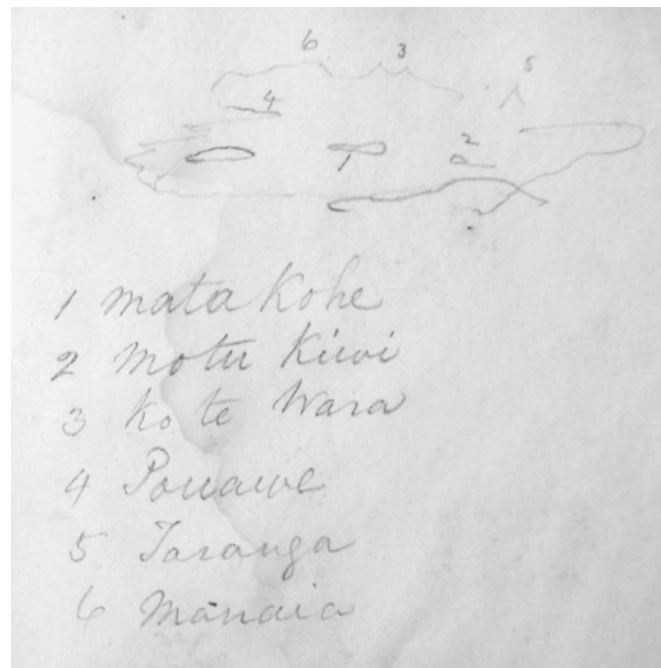 6 3 5
4
1 2
1 mata Kohe
2 motu Kiwi
3 Ko te Wara
4 Pouawe
5 Taranga
6 Manaia